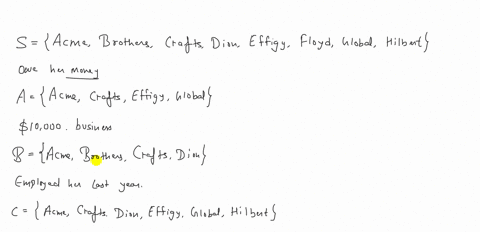 S = {Acme, Brothers, Crafts, Dion, Effigy, Floyd, Global, Hilbert}
Owe her money
A = {Acme, Crafts, Effigy, Global}
$10,000. business
B = {Acme, Brothers, Crafts, Dion}
Employed her last year.
C = {Acme, Crafts, Dion, Effigy, Global, Hilbert}